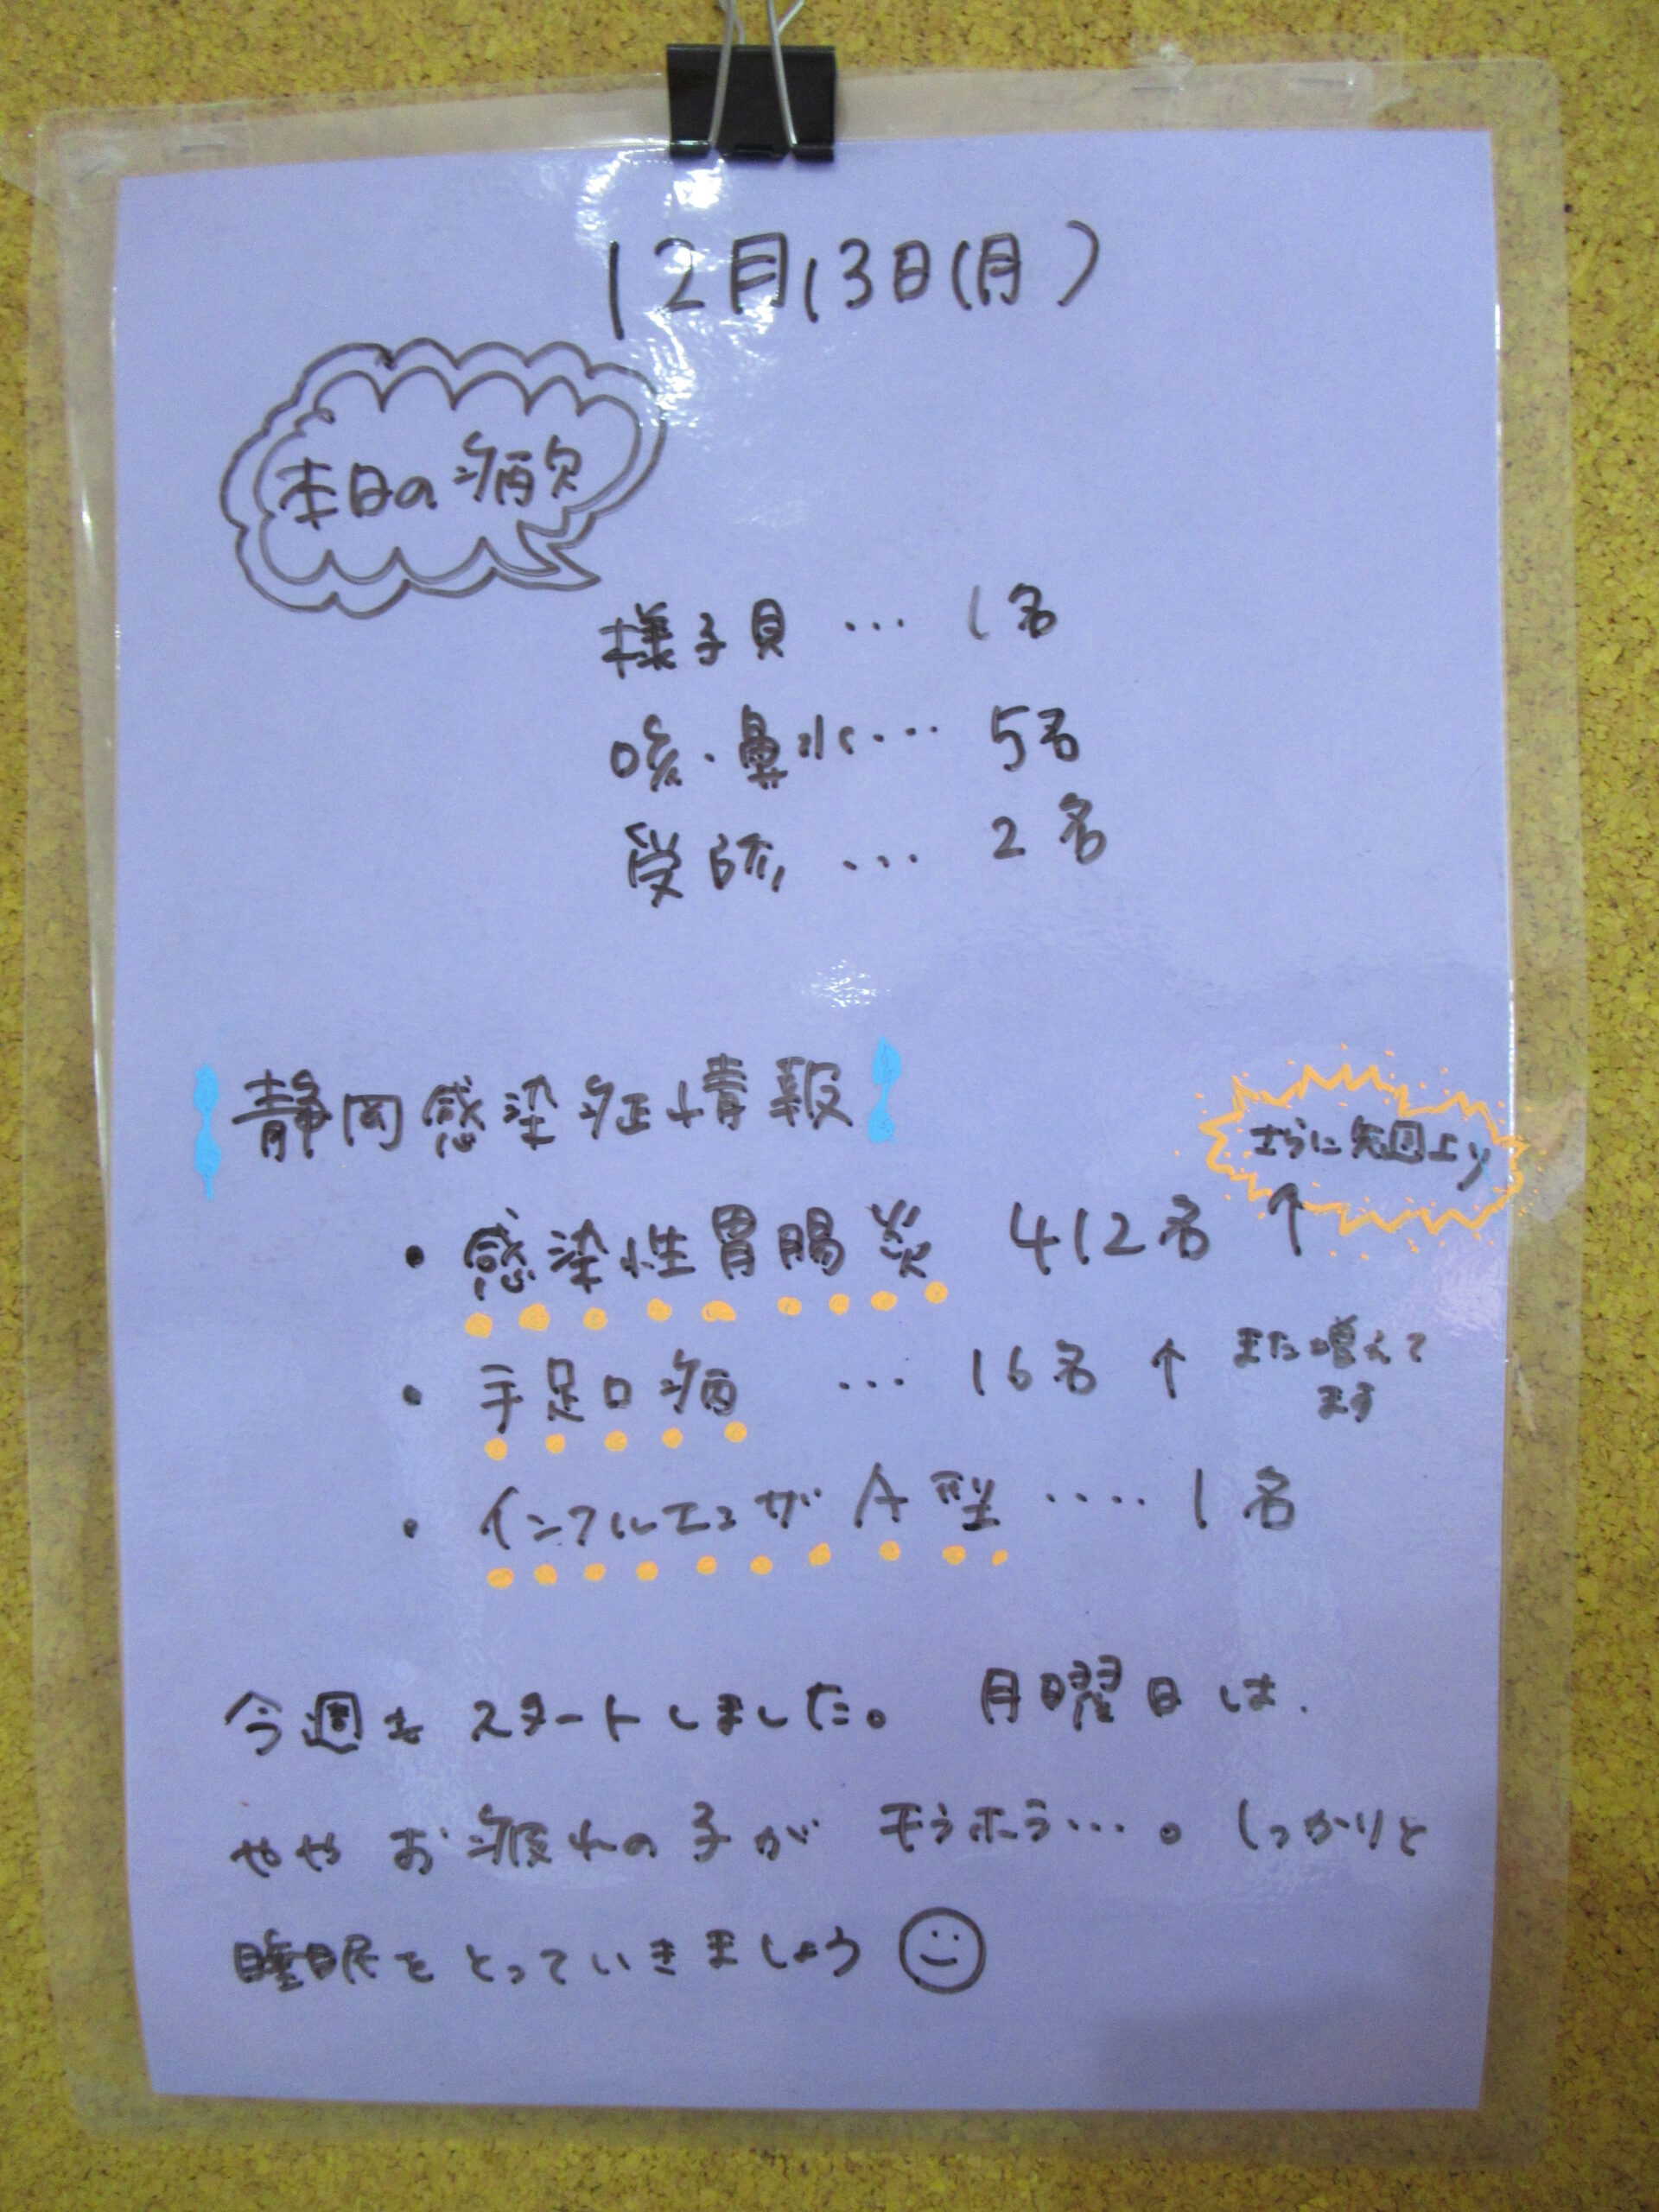 12月13日(月)
本日の病欠
様子見 … 1名
咳・鼻水… 5名
受師 … 2名
静岡感染症情報
さらに先週より
・感染性胃腸炎 412名 ↑
・手足口病 … 16名 ↑ また増えて
ます
・インフルエンザA型 ‥‥ 1名
今週もスタートしました。月曜日は、
ややお疲れの子がチラホラ…。しっかりと
睡眠をとっていきましょう